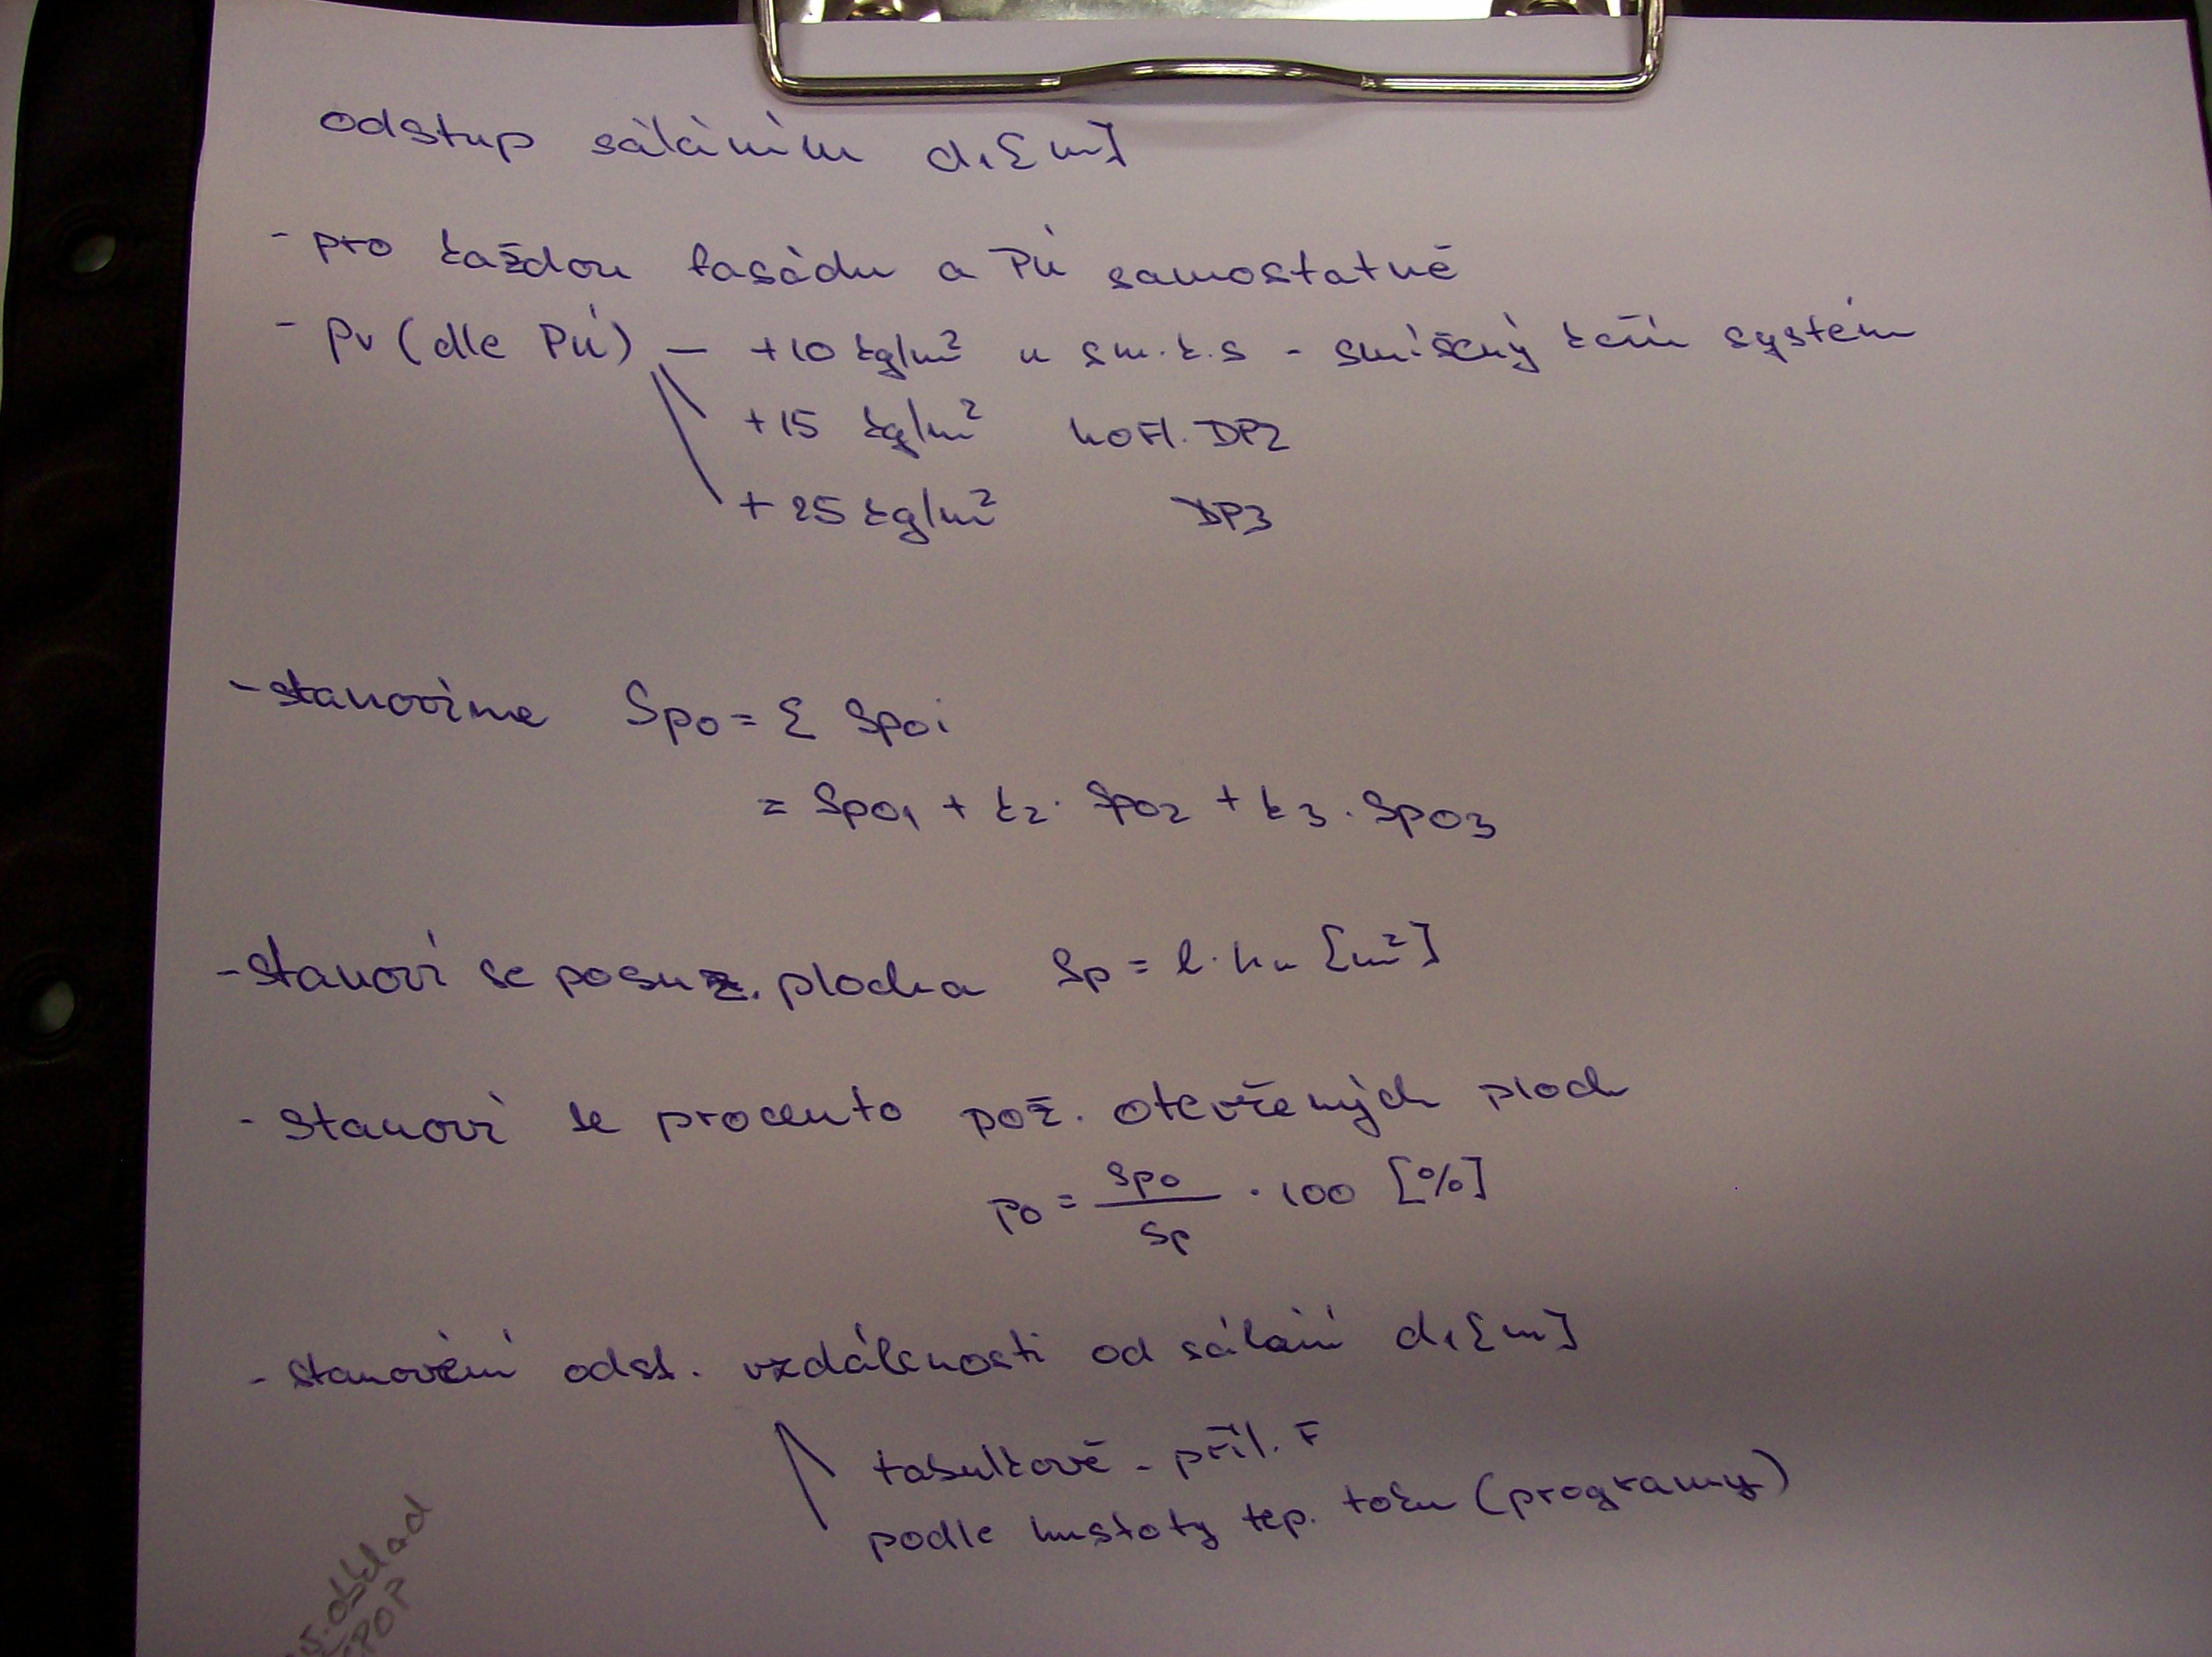 odstup sáláním d₁[m]
- pro každou fasádu a PÚ samostatně
- pv (dle PÚ) - +10 kg/m² u sm.k.s - smíšený kční systém
+15 kg/m² hořl. DP2
+25 kg/m² DP3
- stanovíme Spo = Σ Spoi
= Spo₁ + k₂ · Spo₂ + k₃ · Spo₃
- stanoví se posuz. plocha Sp = l · hu [m²]
- stanoví se procento pož. otevřených ploch
po = Spo / Sp · 100 [%]
- stanovení odst. vzdálenosti od sálání d₁[m]
tabulkově - příl. F
podle hustoty tep. toku (programy)
obklad
POP